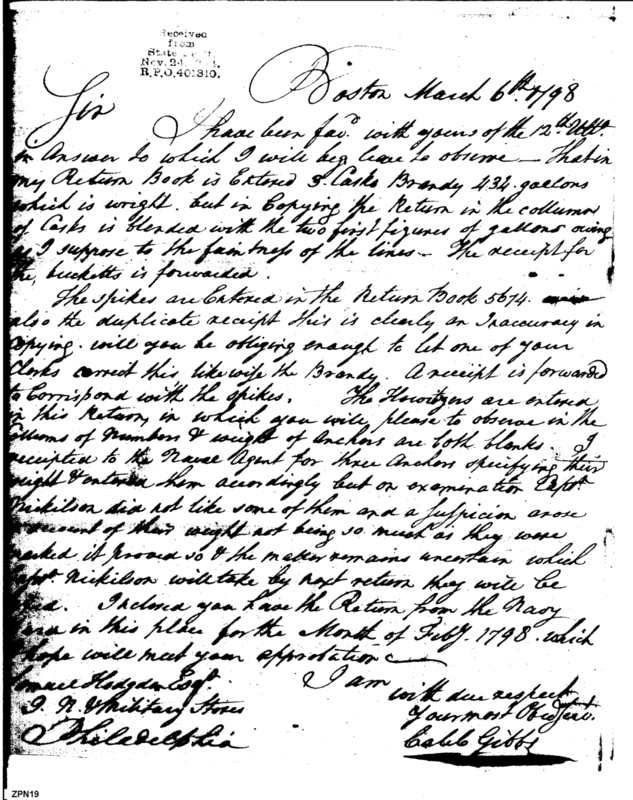 Received
from
State
Nov. 24
R.P.O. 401310.
Boston March 6th 1798
Sir
I have been favd with yours of the 12th Ultr
in Answer to which I will beg leave to observe — That in
my Return Book is Entered 3. Casks Brandy 434. gallons
which is wright. but in Copying the Return in the collumn
of Casks is blended with the two first figures of gallons owing
as I suppose to the faintness of the lines — The receipt for
the, bucketts is forwarded.
The spikes are Entered in the Return Book 5674.
also the duplicate receipt this is clearly an Inaccuracy in
Copying. will you be obliging enough to let one of your
Clerks correct this likewise the Brandy. A receipt is forwarded
to Correspond with the spikes. The Howitzers are entered
in this Return, in which you will please to observe in the
Collums of Numbers & weight of Anchors are both blanks. I
receipted to the Naval Agent for three Anchors specifying their
weight & entered them accordingly but on examination Capt.
Nickilson did not like some of them and a suspicion arose
on account of their weight not being so much as they were
marked it proved so & the matter remains uncertain which
Capt. Nickilson will take by next return they will be
Inclosed you have the Return from the Navy
Yard in this place for the Month of Feby. 1798. which
I hope will meet your approbation
I am
with due respect
Your most Obed Servt.
Caleb Gibbs
Samuel Hodgdon Esqr.
I. N. & Military Stores
Philadelphia
ZPN19